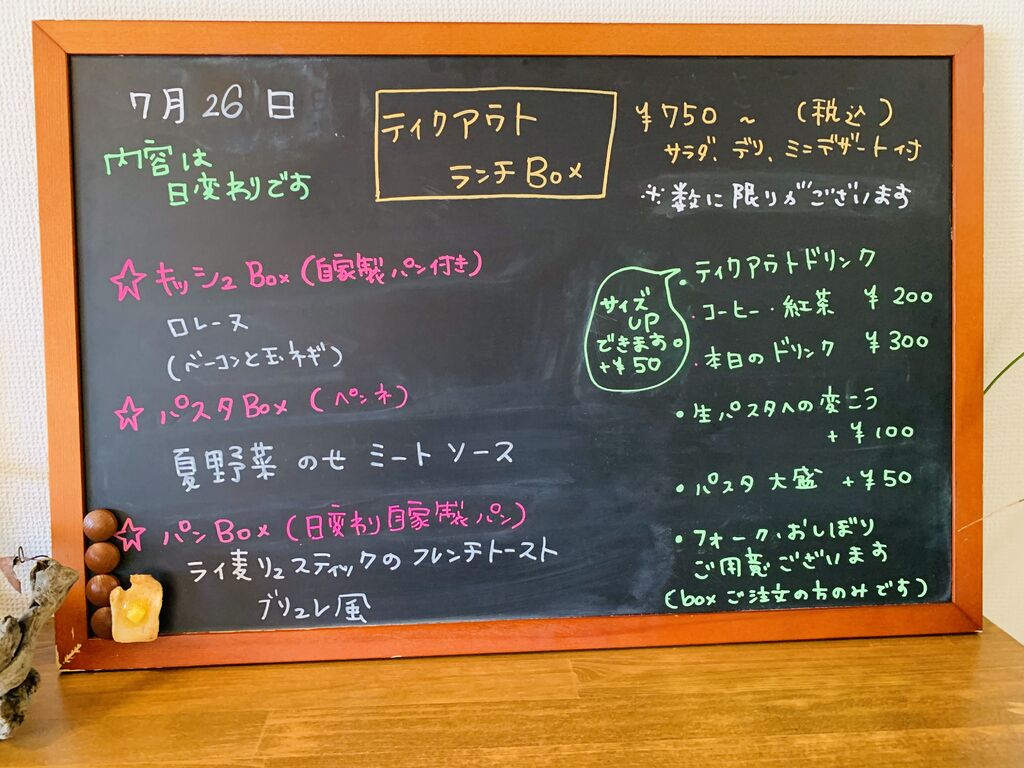 7月26日
内容は
日変わりです
ティクアウト
ランチBox
¥750～（税込）
サラダ、デリ、ミニデザート付
※数に限りがございます
☆キッシュBox（自家製パン付き）
ロレーヌ
（ベーコンと玉ネギ）
☆パスタBox（ペンネ）
夏野菜のせミートソース
☆パンBox（日変わり自家製パン）
ライ麦リュスティックのフレンチトースト
ブリュレ風
サイズ
UP
できます。
+¥50
・ティクアウトドリンク
・コーヒー・紅茶 ¥200
・本日のドリンク ¥300
・生パスタへの変こう
+¥100
・パスタ大盛 +¥50
・フォーク・おしぼり
ご用意ございます
（boxご注文の方のみです）